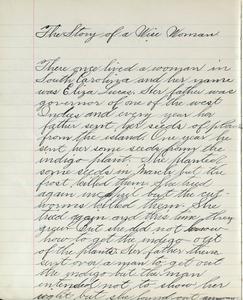 The Story of a Wise Woman
There once lived a woman in
South Carolina and her name
was Eliza Lucas. Her father was
governor of one of the west
Indies and every year her
father sent her seeds of plants
from the island. One year he
sent her some seeds from the
indigo plant. She planted
some seeds in March but the
frost killed them, she tried
again in April but the cut-
worms killed them. She
tried again and this time they
grew. But she did not know
how to get the indigo out
of the plants. Her father then
sent over a man to get out
the indigo but the man
intended not to show her
right but she found out